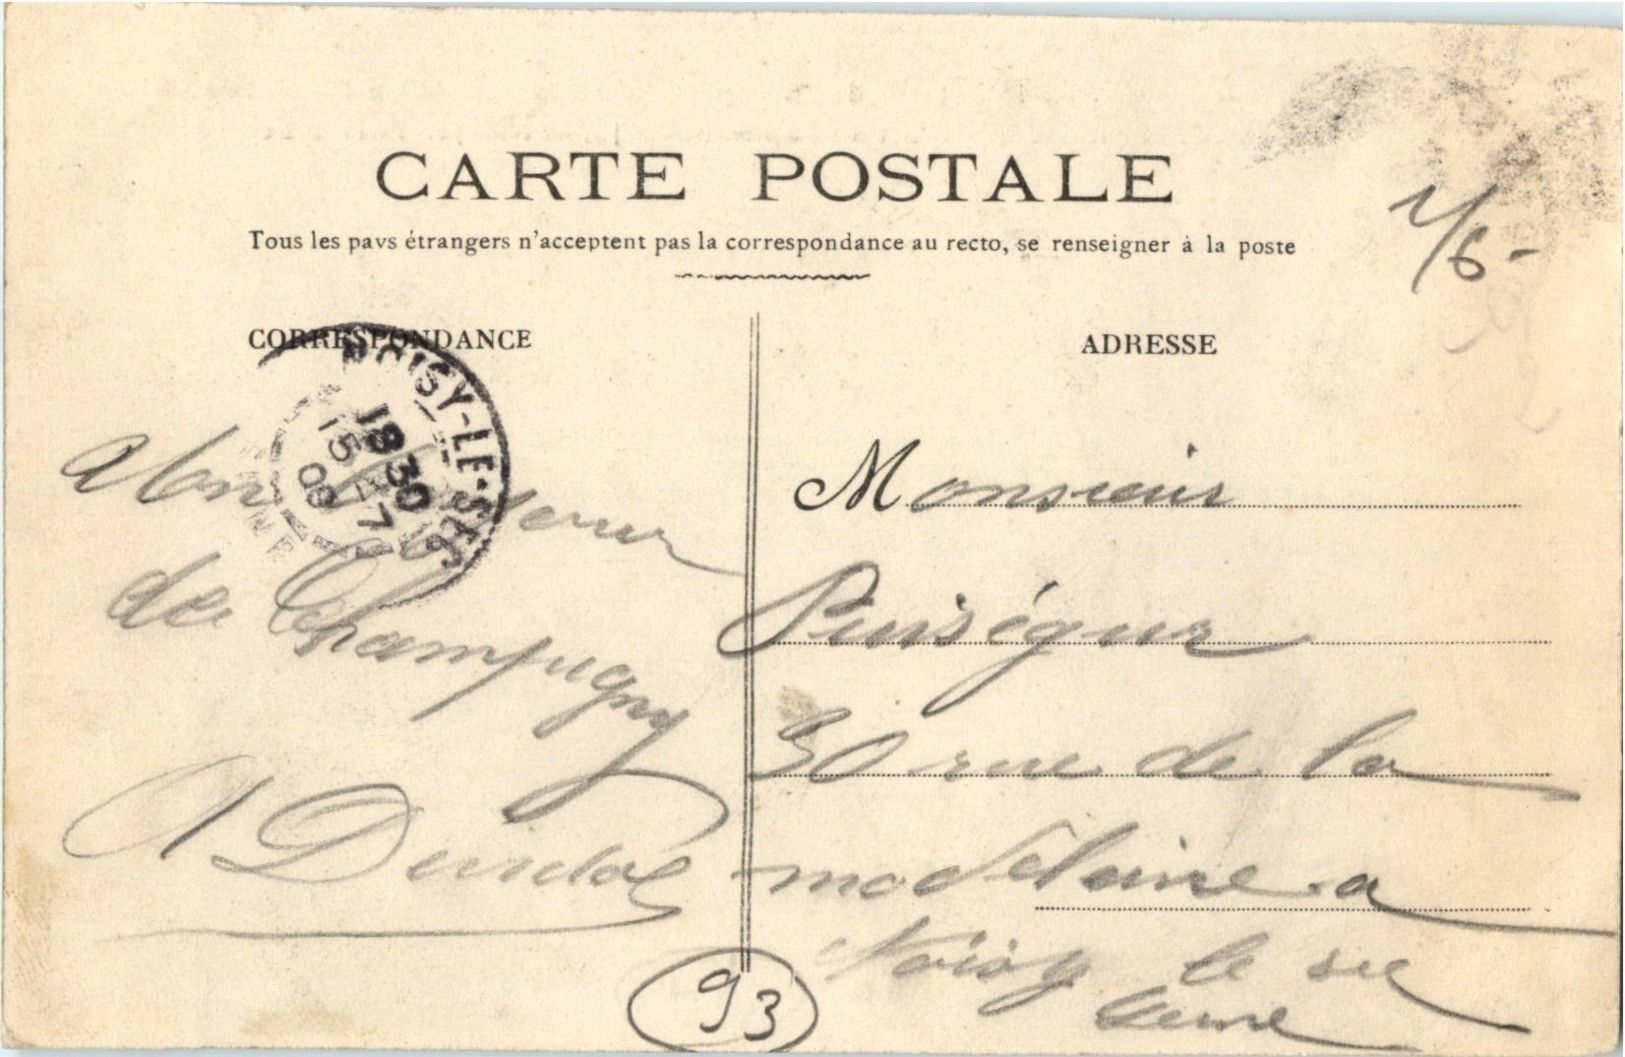 CARTE POSTALE
Tous les pays étrangers n'acceptent pas la correspondance au recto, se renseigner à la poste
1/6-
CORRESPONDANCE
ADRESSE
NOISY-LE-SEC
18 30
15 - 7
09
de Champugny
A
Monsieur
Puiségur
30 rue de la
madelaine a
Noisy le sec
Seine
93